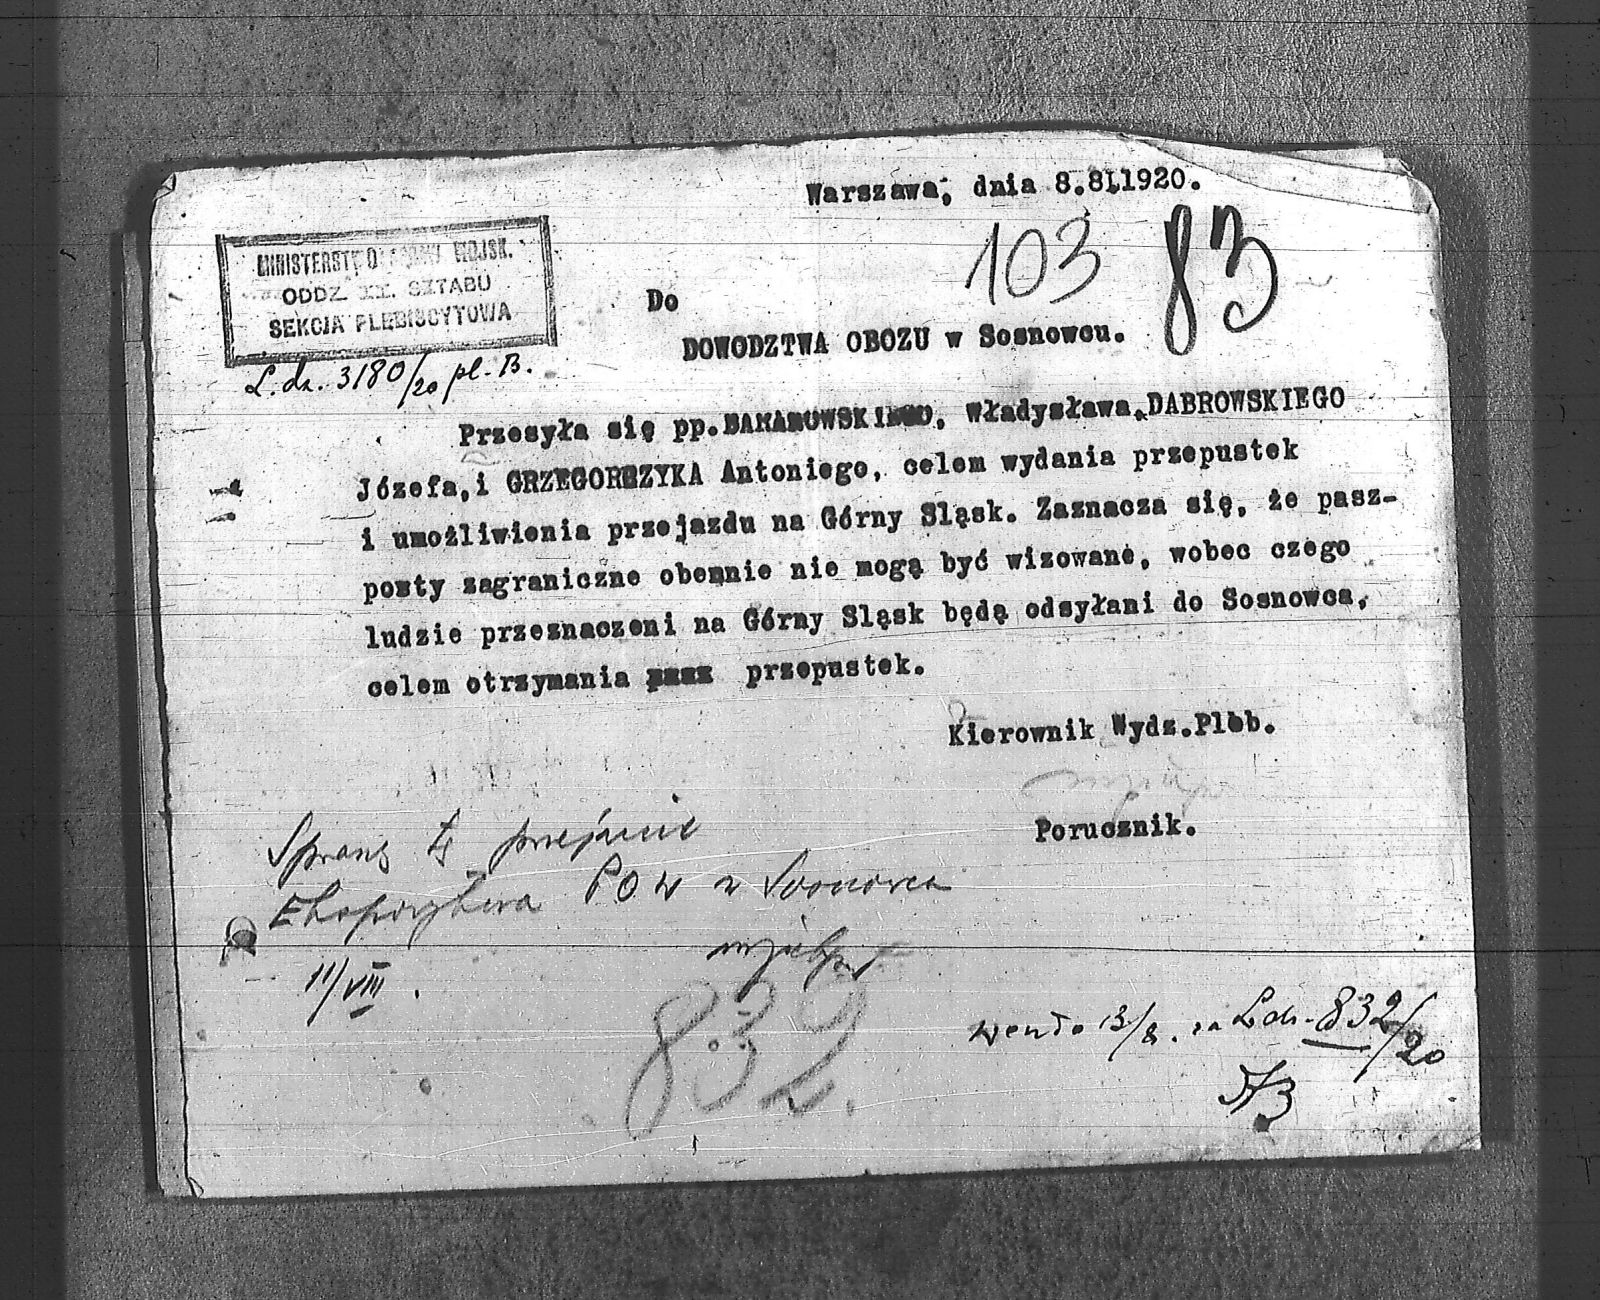 Warszawa, dnia 8.8.1920.
103 83
MINISTERSTWO WOJSK.
ODDZ. II. SZTABU
SEKCJA PLEBISCYTOWA
L. dz. 3180/20 pl. B.
Do
DOWODZTWA OBOZU w Sosnowcu.
Przesyła się pp. Władysława, DABROWSKIEGO
Józefa, i GRZEGORCZYKA Antoniego, celem wydania przepustek
i umożliwienia przejazdu na Górny Sląsk. Zaznacza się, że pasz-
porty zagraniczne obemnie nie mogą być wizowane, wobec czego
ludzie przeznaczeni na Górny Sląsk będą odsyłani do Sosnowca,
celem otrzymania przepustek.
Kierownik Wydz.Pleb.
Porucznik.
Sprawę tę przejmie
Ekspozytura POW w Sosnowcu
11/VIII.
832
weszło 13/8. za L.dz. 832/20